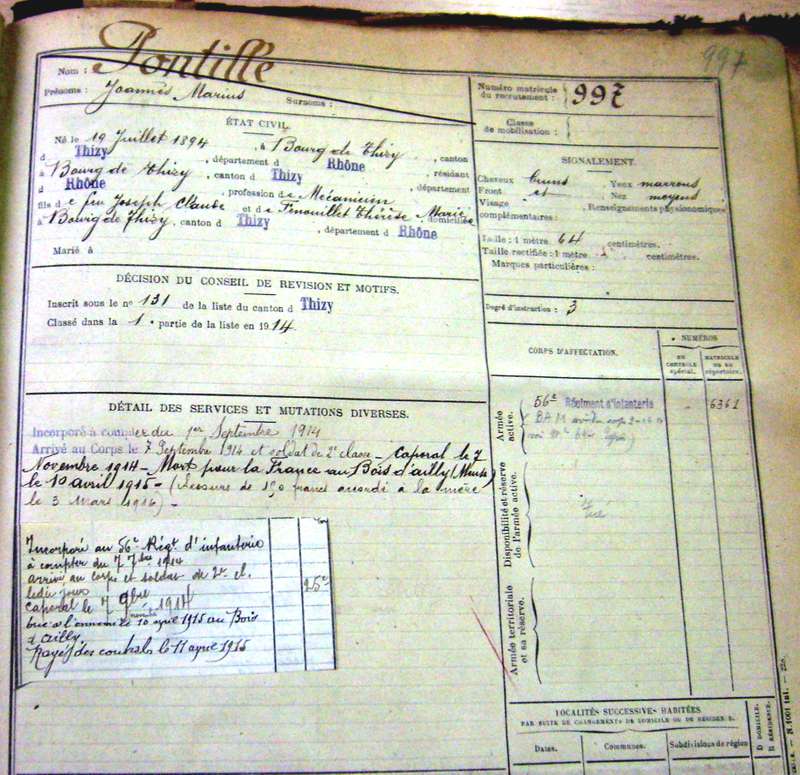 997
Nom : Pontille
Prénoms : Joannès Marius Surnoms :
ÉTAT CIVIL.
Né le 19 Juillet 1894, à Bourg de Thizy, canton
d Thizy, département d Rhône, résidant
à Bourg de Thizy, canton d Thizy, département
d Rhône, profession de Mécanicien
fils de feu Joseph Claude et de Fenouillet Thérèse Marie domiciliés
à Bourg de Thizy, canton d Thizy, département d Rhône
Marié à
DÉCISION DU CONSEIL DE REVISION ET MOTIFS.
Inscrit sous le n° 131 de la liste du canton d Thizy
Classé dans la 1. partie de la liste en 1914
DÉTAIL DES SERVICES ET MUTATIONS DIVERSES.
Incorporé à compter du 1er Septembre 1914
Arrivé au Corps le 7 Septembre 1914 et soldat de 2e classe - Caporal le 7
Novembre 1914 - Mort pour la France au Bois d'ailly (Meuse)
le 10 avril 1915 - (Secours de 150 francs accordé à la mère
le 3 Mars 1916) -
Incorporé au 56e Régt d'infanterie
à compter du 7 7bre 1914
arrivé au corps et soldat de 2e cl.
ledit jour
caporal le 7 9bre 1914
tué à l'ennemi le 10 april 1915 au Bois
d'ailly.
Rayé des controls le 11 april 1915
Numéro matricule du recrutement : 997
Classe de mobilisation :
SIGNALEMENT.
Cheveux bruns Yeux marrons
Front Nez moyens
Visage Renseignements physionomiques
complémentaires :
Taille : 1 mètre 64 centimètres.
Taille rectifiée : 1 mètre centimètres.
Marques particulières :
Degré d'instruction : 3
CORPS D'AFFECTATION.
NUMÉROS
AU CONTRÔLE spécial.
MATRICULE ou au répertoire.
Armée active.
56e Régiment d'infanterie 6361
Disponibilité et réserve de l'armée active.
Tué
Armée territoriale et sa réserve.
LOCALITÉS SUCCESSIVES HABITÉES
PAR SUITE DE CHANGEMENTS DE DOMICILE OU DE RÉSIDENCE.
Dates. Communes. Subdivisions de région
D DOMICILE.
R RÉSIDENCE.
N. 1001 int.